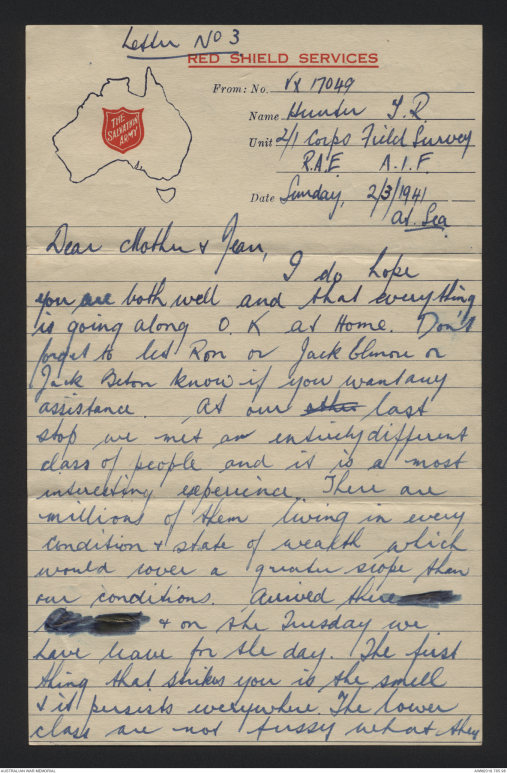 Letter No 3
RED SHIELD SERVICES
From: No. VX 17049
Name Hunter T. R.
Unit 2/1 Corps Field Survey
R.A.E A.I.F.
Date Sunday, 2/3/1941
At Sea
THE
SALVATION
ARMY
Dear Mother & Jean,
I do hope
you are both well and that everything
is going along O.K at Home. Don't
forget to let Ron or Jack Elmore or
Jack Beton know if you want any
assistance. At our last
stop we met an entirely different
class of people and it is a most
interesting experience. There are
millions of them living in every
condition & state of wealth which
would cover a greater scope than
our conditions. Arrived there
& on the Tuesday we
have leave for the day. The first
thing that strikes you is the smell
& it persists everywhere. The lower
class are not fussy what they
AUSTRALIAN WAR MEMORIAL